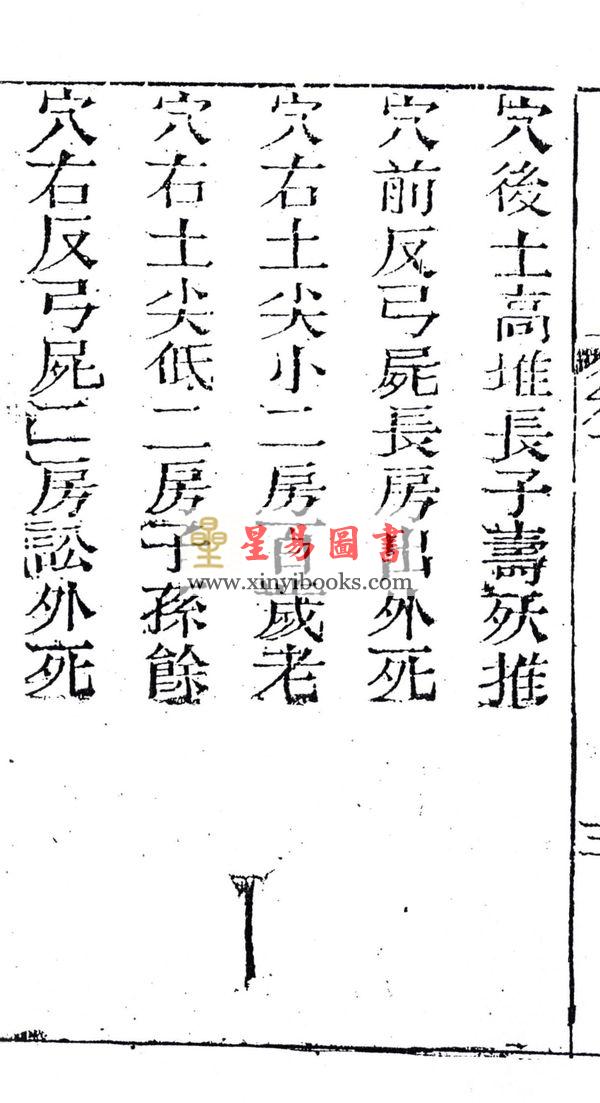 穴後土高堆長子壽殀推
穴前反弓屍長房出外死
穴右土尖小二房百歲老
穴右土尖低二房子孫餘
穴右反弓屍二房訟外死
三
星易圖書
www.xinyibooks.com